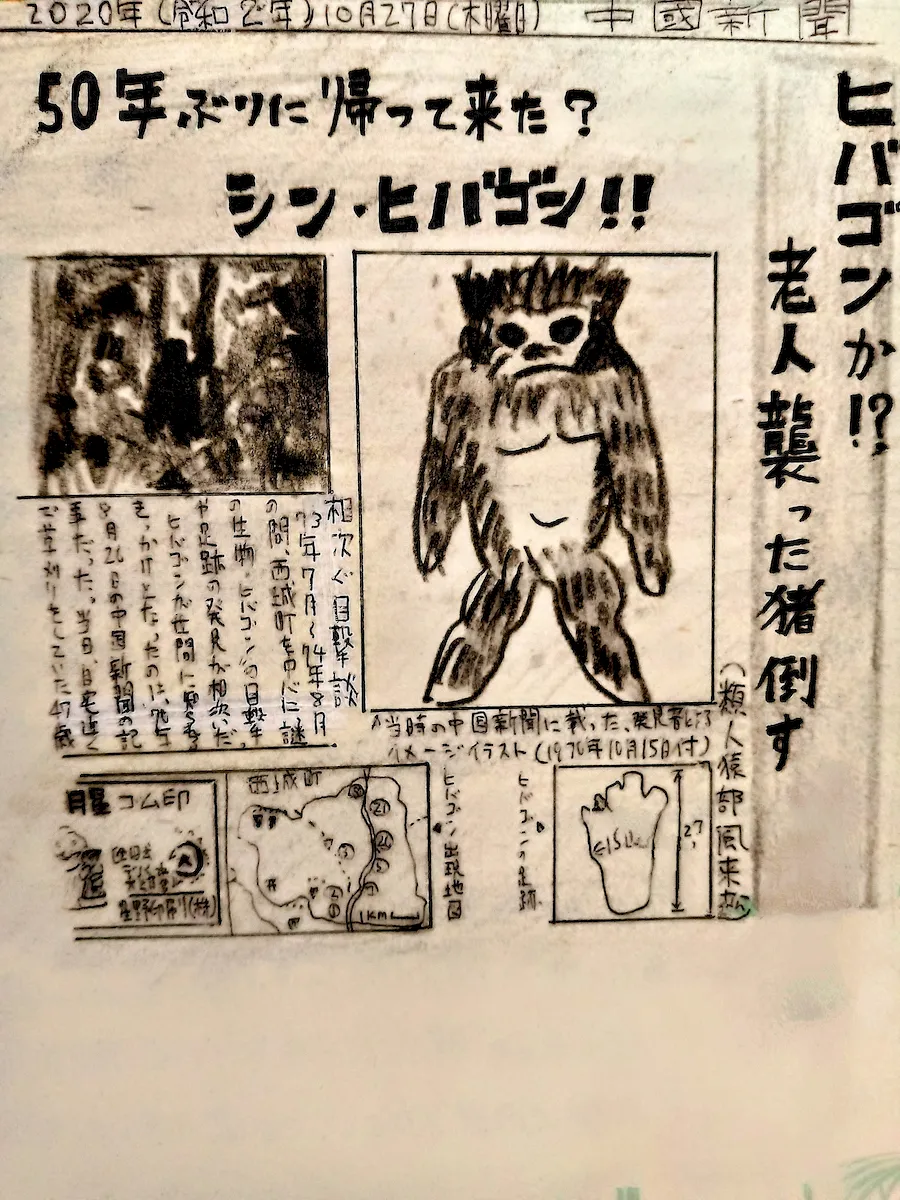 2020年(令和2年)10月27日(木曜日) 中國新聞
ヒバゴンか!?
老人襲った猪倒す
50年ぶりに帰って来た?
シン・ヒバゴン!!
(類人猿部風来
相次ぐ目撃談
73年7月〜74年8月
の間、西城町を中心に謎
の生物、ヒバゴンの目撃
や足跡の発見が相次いだ
ヒバゴンが世間に知られる
きっかけとなったのは、
8月26日の中国新聞の記
事だった。当日、自宅近く
で草刈りをしていた47歳
当時の中国新聞に載った、発見者による
イメージイラスト(1970年10月15日付)
ヒバゴンの足跡
27
ヒバゴン出現地図
西城町
1KM